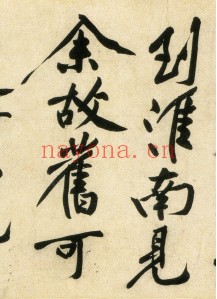 到淮南見
余故舊可
nayona.cn